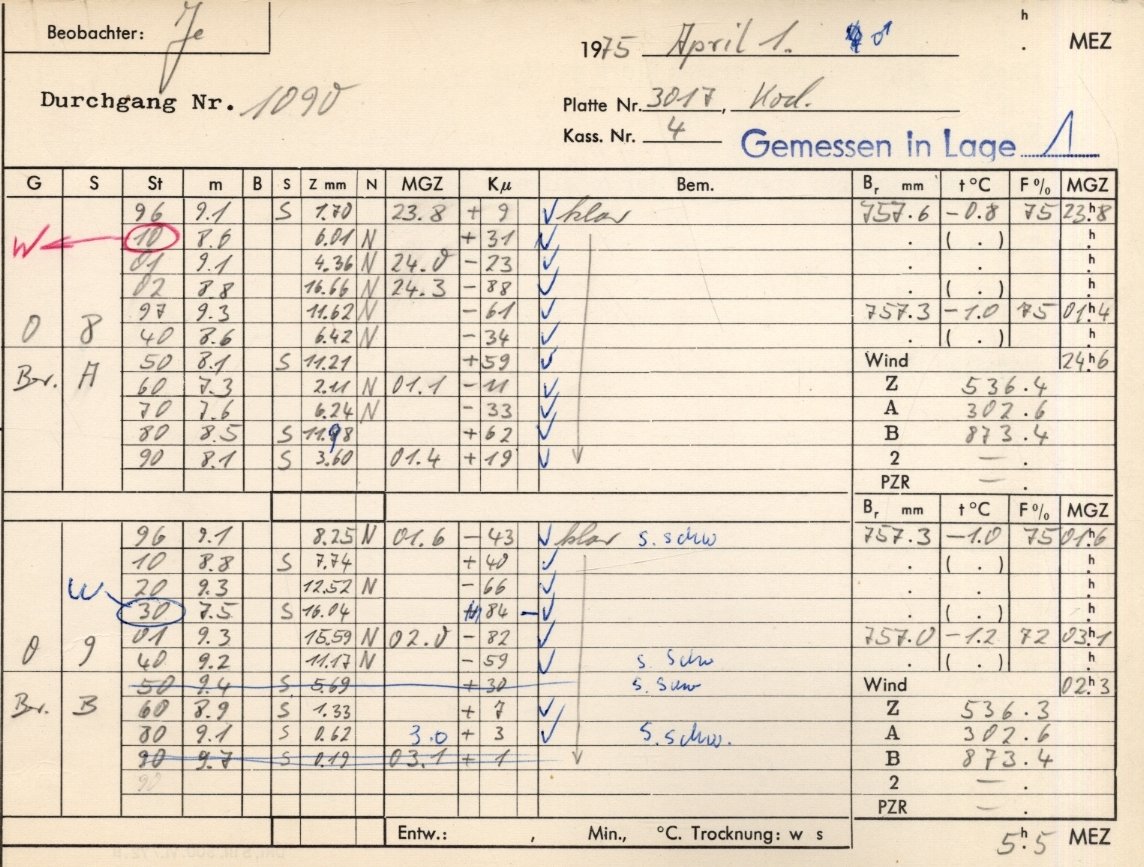 Beobachter: Je
1975 April 1. ♂ h . MEZ
Durchgang Nr. 1090
Platte Nr. 3017, Kod.
Kass. Nr. 4 Gemessen in Lage 1
G S St m B S Z mm N MGZ Kμ Bem. Br mm t °C F % MGZ
96 9.1 S 1.70 23.8 + 9 ✓ klar 757.6 -0.8 75 23h.8
W 10 8.6 6.01 N + 31 ✓ . ( . ) h.
01 9.1 4.36 N 24.0 - 23 ✓ . . h.
02 8.8 16.66 N 24.3 - 88 ✓ . ( . ) h.
97 9.3 11.62 N - 61 ✓ 757.3 -1.0 75 01h.4
0 8 40 8.6 6.42 N - 34 ✓ . ( . ) h.
50 8.1 S 11.21 + 59 ✓ Wind 24h.6
Br. A 60 7.3 2.11 N 01.1 - 11 ✓ Z 536.4
70 7.6 6.24 N - 33 ✓ A 302.6
80 8.5 S 11.98 + 62 ✓ B 873.4
90 8.1 S 3.60 01.4 + 19 ✓ 2 — .
PZR — .
Br mm t °C F % MGZ
96 9.1 8.25 N 01.6 - 43 ✓ klar s. schw 757.3 -1.0 75 01h.6
10 8.8 S 7.74 + 40 ✓ . ( . ) h.
20 9.3 12.52 N - 66 ✓ . . h.
W 30 7.5 S 16.04 84 - ✓ . ( . ) h.
01 9.3 15.59 N 02.0 - 82 ✓ 757.0 -1.2 72 03h.1
0 9 40 9.2 11.17 N - 59 ✓ s. schw . ( . ) h.
50 9.4 S 5.69 + 30 s. schw Wind 02h.3
Br. B 60 8.9 S 1.33 + 7 ✓ Z 536.3
80 9.1 S 0.62 3.0 + 3 ✓ s. schw. A 302.6
90 9.7 S 0.19 03.1 + 1 B 873.4
90 2 — .
PZR — .
Entw.: , Min., °C. Trocknung: w s 5h.5 MEZ